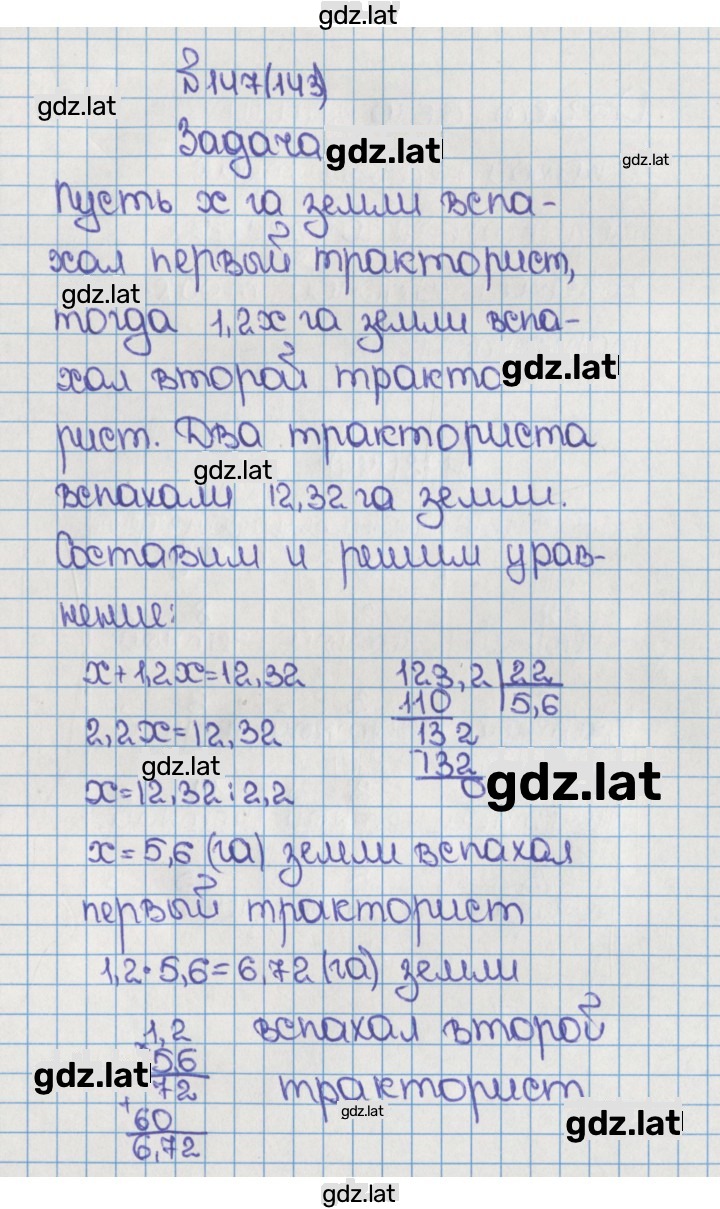 gdz.lat
№147(143)
gdz.lat
Задача gdz.lat
gdz.lat
Пусть x га земли вспа-
хал первый тракторист,
gdz.lat
тогда 1,2x га земли вспа-
хал второй тракто gdz.lat
рист. Два тракториста
gdz.lat
вспахали 12,32 га земли.
Составим и решим урав-
нение:
x+1,2x=12,32
2,2x=12,32
gdz.lat
x=12,32:2,2
123,2 22
110 5,6
132
132
0
gdz.lat
x=5,6 (га) земли вспахал
первый тракторист
1,2·5,6=6,72 (га) земли
вспахал второй
тракторист
1,2
5,6
gdz.lat
72
+
60
6,72
gdz.lat
gdz.lat
gdz.lat